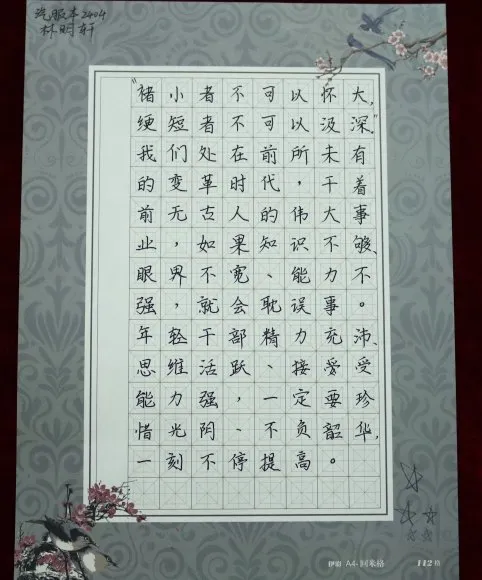 汽服本2404
林明轩
“褚小者不可以怀大,
绠短者不可以汲深。”
我们处在前所未有
的变革时代,干着
前无古人的伟大事
业,如果知识不够、
眼界不宽、能力不
强,就会耽误事。
年轻干部精力充沛、
思维活跃、接爱受
能力强,一定要珍
惜光阴、不负韶华,
一刻不停提高。
A4-回米格
112格